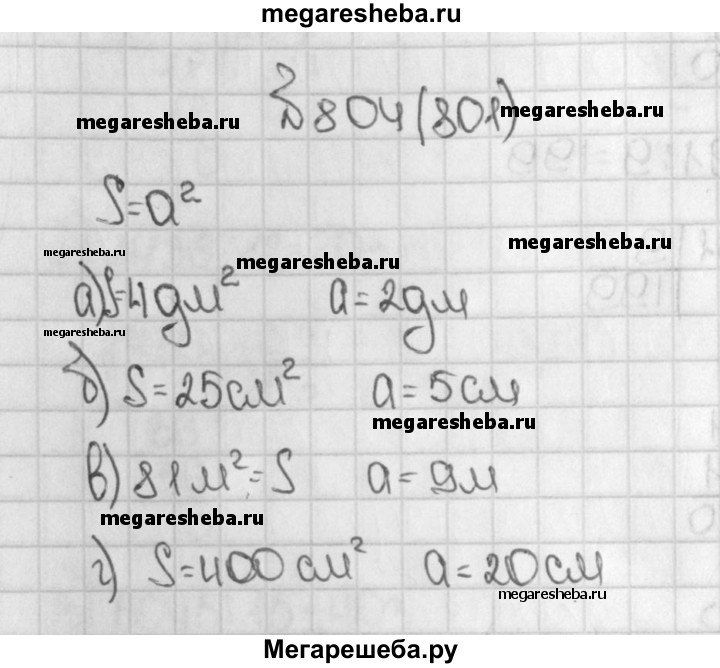 megaresheba.ru
№ 804 (801)
megaresheba.ru megaresheba.ru
S=a²
megaresheba.ru megaresheba.ru megaresheba.ru
а) S=4дм² a=2дм
megaresheba.ru
б) S=25см² a=5см
megaresheba.ru
в) 81м²=S a=9м
megaresheba.ru
г) S=400см² a=20см
megaresheba.ru
Мегарешеба.ру